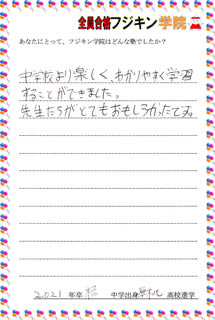 全員合格フジキン学院
あなたにとって、フジキン学院はどんな塾でしたか？
中学校より楽しく、わかりやすく学習
することができました。
先生たちがとてもおもしろかったです。
2021 年卒 桜 中学出身 高校進学